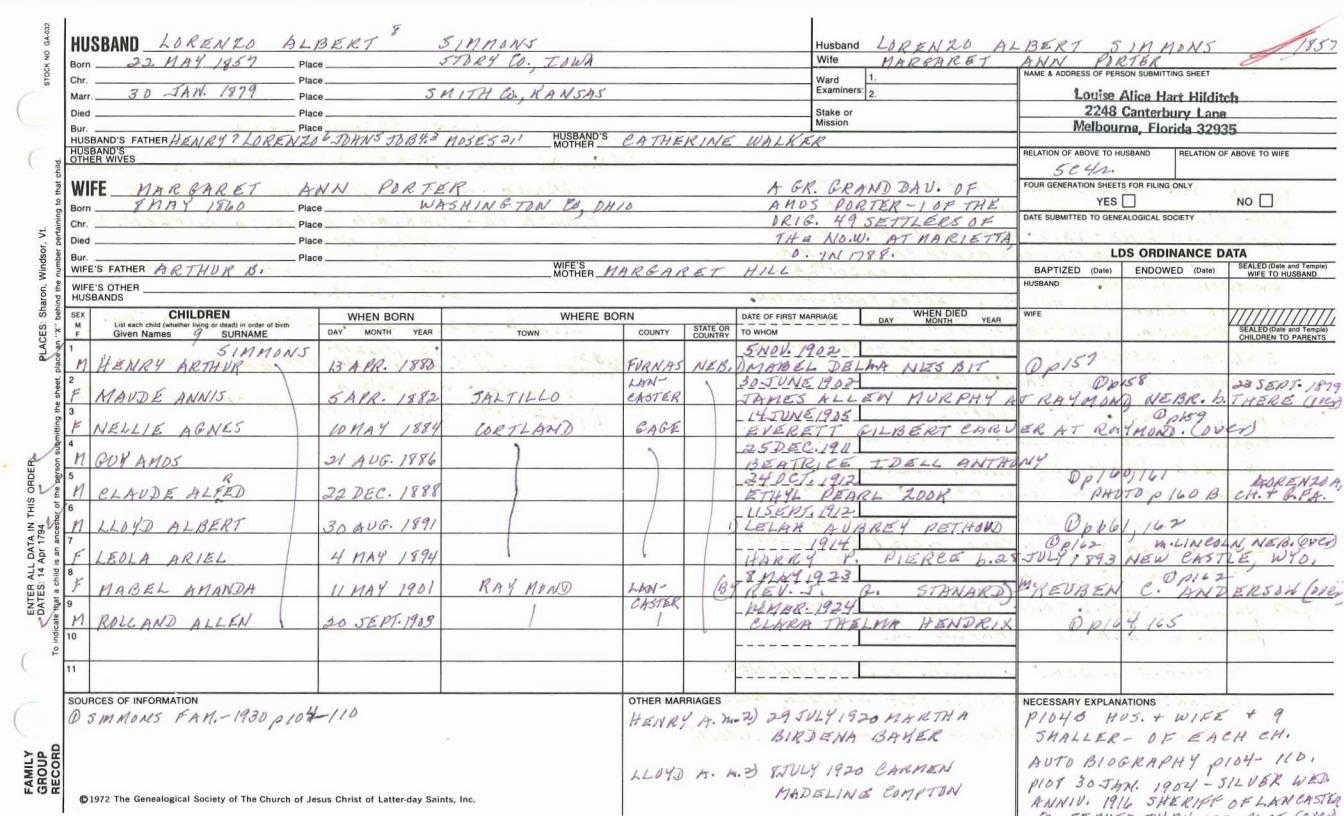 STOCK NO GA-032
HUSBAND LORENZO ALBERT 8 SIMMONS
Born 22 MAY 1857 Place STORY CO., IOWA
Chr. Place
Marr. 30 JAN. 1879 Place SMITH CO., KANSAS
Died Place
Bur. Place
HUSBAND'S FATHER HENRY 7 LORENZO 6 JOHN 5 JOB 4,3 MOSES 2,1 HUSBAND'S MOTHER CATHERINE WALKER
HUSBAND'S OTHER WIVES
Husband LORENZO ALBERT SIMMONS 1857
Wife MARGARET ANN PORTER
Ward Examiners: 1.
2.
Stake or Mission
NAME & ADDRESS OF PERSON SUBMITTING SHEET
Louise Alice Hart Hilditch
2248 Canterbury Lane
Melbourne, Florida 32935
RELATION OF ABOVE TO HUSBAND RELATION OF ABOVE TO WIFE
5C4R
FOUR GENERATION SHEETS FOR FILING ONLY
YES NO
DATE SUBMITTED TO GENEALOGICAL SOCIETY
WIFE MARGARET ANN PORTER
Born 8 MAY 1860 Place WASHINGTON CO, OHIO
Chr. Place
Died Place
Bur. Place
A GR. GRAND DAU. OF
AMOS PORTER-1 OF THE
ORIG. 49 SETTLERS OF
THE NO.W. AT MARIETTA,
O. IN 1788.
WIFE'S FATHER ARTHUR B. WIFE'S MOTHER MARGARET HILL
WIFE'S OTHER HUSBANDS
LDS ORDINANCE DATA
BAPTIZED (Date) ENDOWED (Date) SEALED (Date and Temple) WIFE TO HUSBAND
HUSBAND
WIFE
SEALED (Date and Temple) CHILDREN TO PARENTS
SEX M F CHILDREN WHEN BORN WHERE BORN DATE OF FIRST MARRIAGE WHEN DIED
List each child (whether living or dead) in order of birth
Given Names 9 SURNAME DAY MONTH YEAR TOWN COUNTY STATE OR COUNTRY TO WHOM DAY MONTH YEAR
1 SIMMONS 5 NOV. 1902
M HENRY ARTHUR 13 APR. 1880 FURNAS NEB. MABEL DELMA NESBIT ① p157
2 LAN- 30 JUNE 1902 ① p158 23 SEPT. 1879
F MAUDE ANNIS 5 APR. 1882 JALTILLO CASTER JAMES ALLEN MURPHY AT RAYMOND NEBR. b. THERE
3 14 JUNE 1905 ① p159
F NELLIE AGNES 10 MAY 1884 CORTLAND GAGE EVERETT GILBERT CARVER AT RAYMOND. (OVER)
4 25 DEC. 1911
M GUY AMOS 21 AUG. 1886 BEATRICE IDELL ANTHONY
5 24 OCT. 1912 ① p160,161 LORENZO A.
M CLAUDE ALFRED 22 DEC. 1888 ETHYL PEARL ZOOK PHOTO p 160 B CH. + G.FA.
6 11 SEPT. 1912
M LLOYD ALBERT 30 AUG. 1891 LELAH AUBREY PETHOUD ① p161, 162
7 1914 ① p162 m. LINCOLN, NEB. (OVER)
F LEOLA ARIEL 4 MAY 1894 HARRY P. PIERCE b. 28 JULY 1893 NEW CASTLE, WYO.
8 8 MAY 1923 ① p162
F MABEL AMANDA 11 MAY 1901 RAYMOND LAN-CASTER (BY REV. J. G. STANARD) REUBEN C. ANDERSON (OVER)
9 MAR. 1924
M ROLLAND ALLEN 20 SEPT. 1903 CLARA THELMA HENDRIX ① p164, 165
10
11
SOURCES OF INFORMATION
① SIMMONS FAM.-1930 p104-110
OTHER MARRIAGES
HENRY A. m. 2) 29 JULY 1920 MARTHA
BIRDENA BAKER
LLOYD A. m. 2) 8 JULY 1920 CARMEN
MADELINE COMPTON
NECESSARY EXPLANATIONS
P104B HUS. + WIFE + 9
SMALLER- OF EACH CH.
AUTO BIOGRAPHY p104-110.
P108 30 JAN. 1904 - SILVER WED.
ANNIV. 1916 SHERIFF OF LANCASTER
©1972 The Genealogical Society of The Church of Jesus Christ of Latter-day Saints, Inc.
FAMILY GROUP RECORD
ENTER ALL DATA IN THIS ORDER
DATES: 14 Apr 1794
PLACES: Sharon, Windsor, Vt.
To indicate that a child is an ancestor of the person submitting the sheet, place an "X" behind the number pertaining to that child.